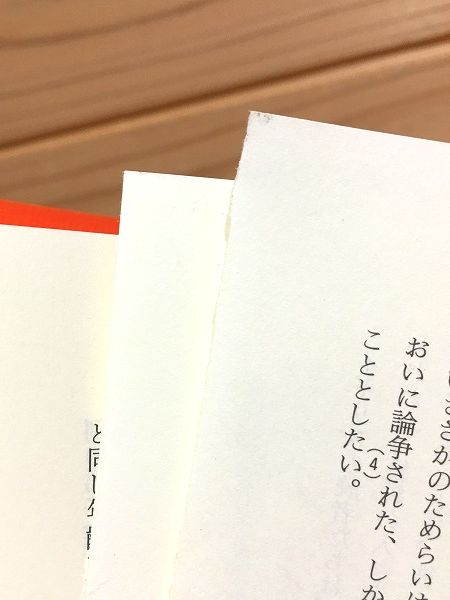 ささかのためらいは
おいに論争された、しか
(4)
こととしたい。
と同じ